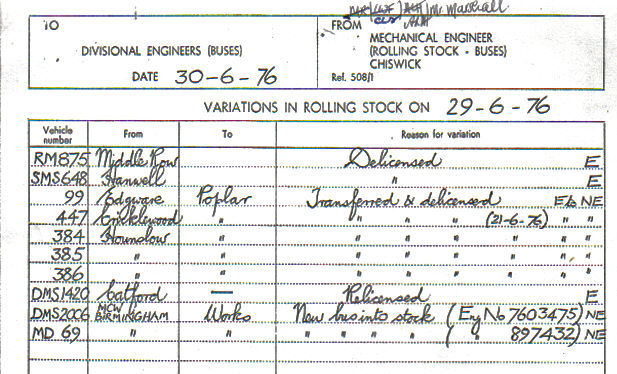 Mr Marshall
TO
FROM
DIVISIONAL ENGINEERS (BUSES)
MECHANICAL ENGINEER
(ROLLING STOCK - BUSES)
CHISWICK
DATE 30-6-76
Ref. 508/1
VARIATIONS IN ROLLING STOCK ON 29-6-76
Vehicle number From To Reason for variation
RM875 Middle Row Delicensed E
SMS648 Hanwell " E
99 Edgware Poplar Transferred & delicensed E to NE
447 Cricklewood " " " " (21-6-76) " "
384 Hounslow " " " " " "
385 " " " " " " "
386 " " " " " " "
DMS1420 Catford — Relicensed E
DMS2006 MCW BIRMINGHAM Works New bus into stock (Eng No 7603475) NE
MD 69 " " " " " " ( " 897432) NE